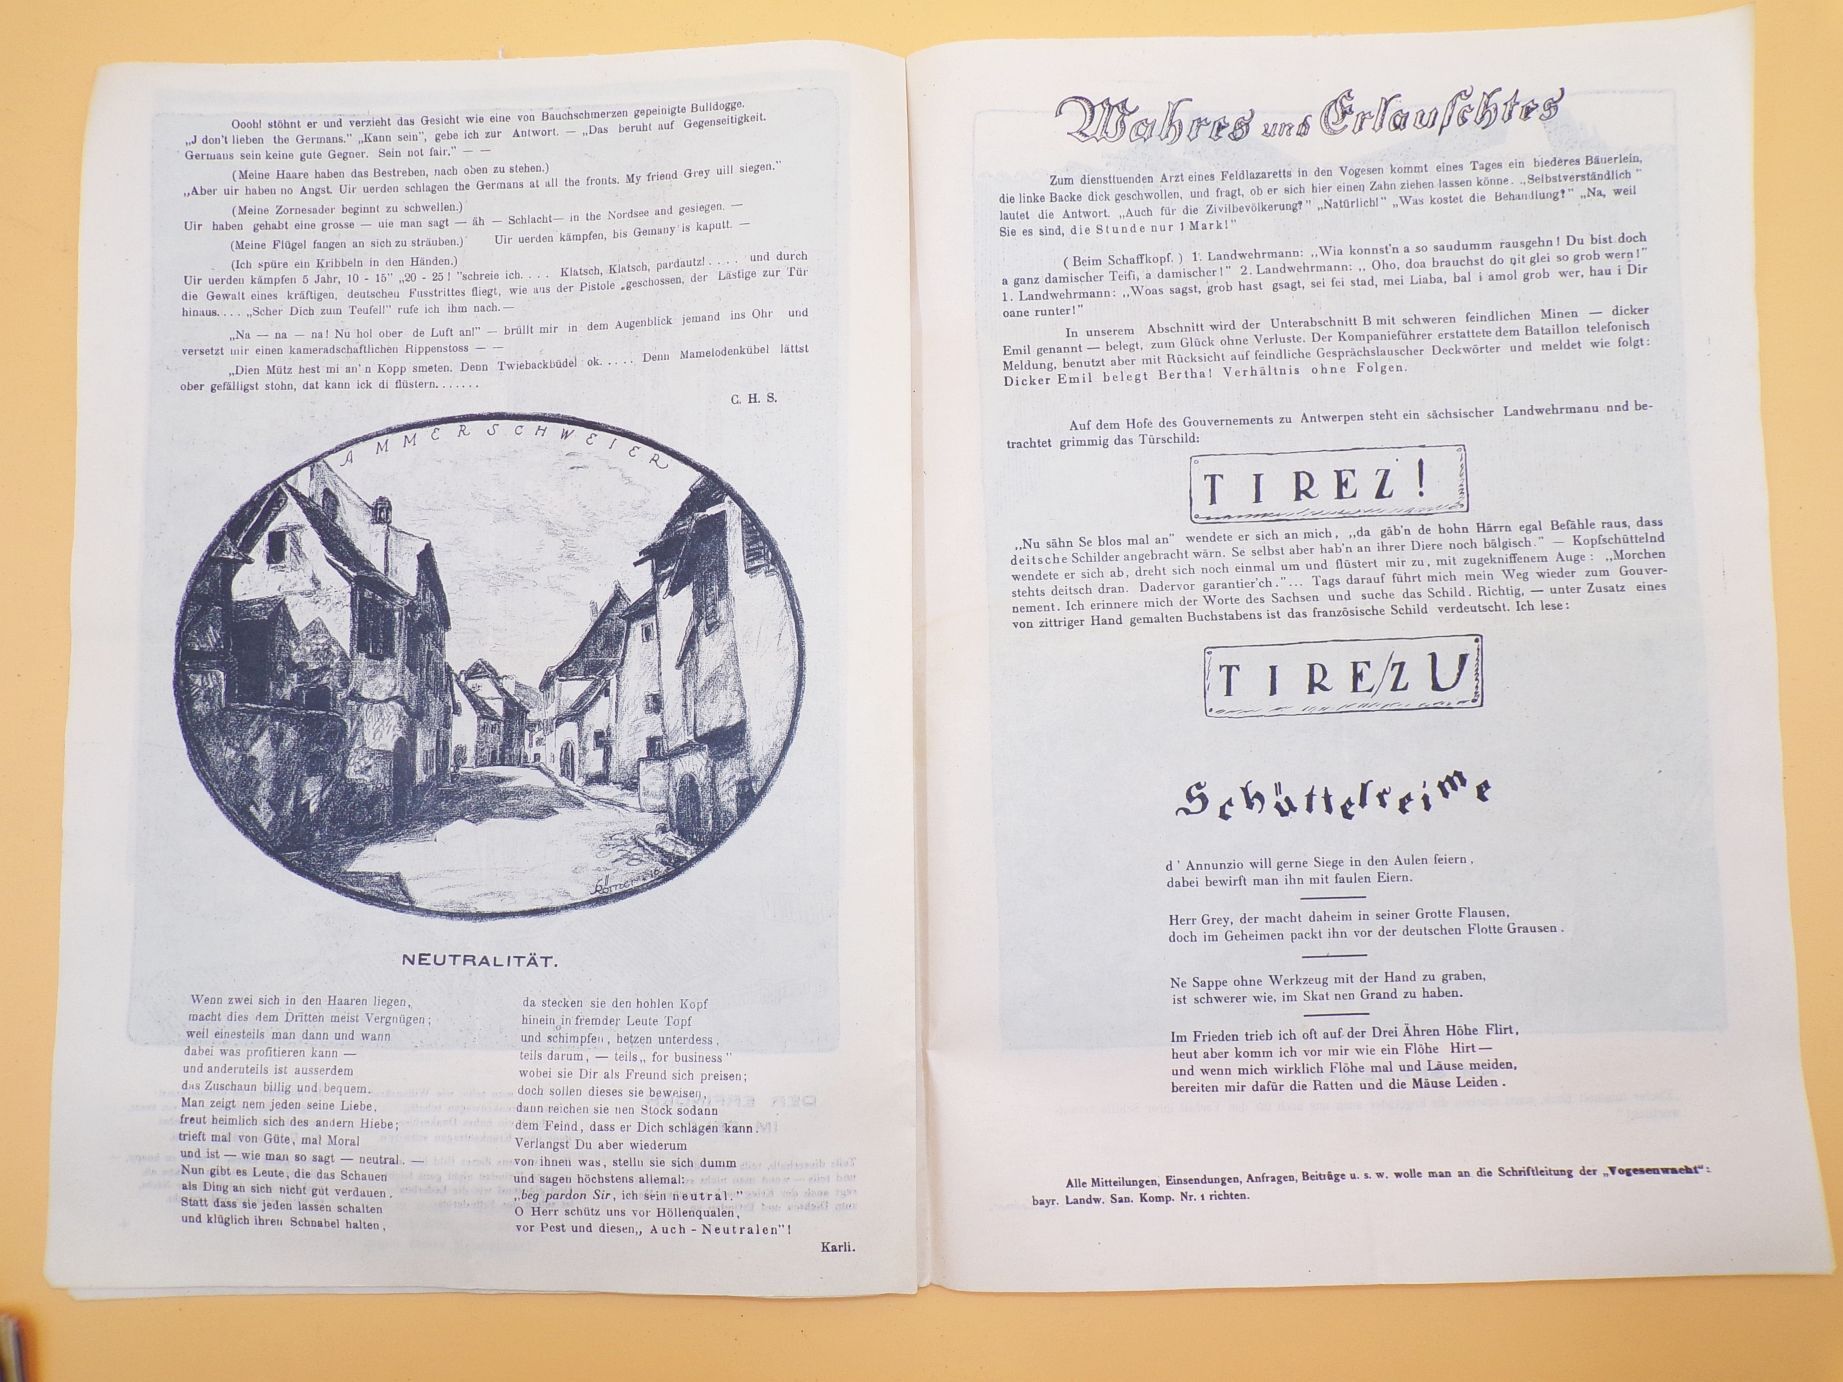 Oooh! stöhnt er und verzieht das Gesicht wie eine von Bauchschmerzen gepeinigte Bulldogge.
„J don't lieben the Germans." „Kann sein", gebe ich zur Antwort. — „Das beruht auf Gegenseitigkeit.
Germans sein keine gute Gegner. Sein not fair." — —
(Meine Haare haben das Bestreben, nach oben zu stehen.)
„Aber uir haben no Angst. Uir uerden schlagen the Germans at all the fronts. My friend Grey uill siegen."
(Meine Zornesader beginnt zu schwellen.)
Uir haben gehabt eine grosse — uie man sagt — äh — Schlacht — in the Nordsee and gesiegen. —
(Meine Flügel fangen an sich zu sträuben.) Uir uerden kämpfen, bis Gemany is kaputt. —
(Ich spüre ein Kribbeln in den Händen.)
Uir uerden kämpfen 5 Jahr, 10 - 15" „20 - 25! "schreie ich.... Klatsch, Klatsch, pardautz!.... und durch
die Gewalt eines kräftigen, deutschen Fusstrittes fliegt, wie aus der Pistole geschossen, der Lästige zur Tür
hinaus.... „Scher Dich zum Teufel!" rufe ich ihm nach. —
„Na — na — na! Nu hol ober de Luft an!" — brüllt mir in dem Augenblick jemand ins Ohr und
versetzt mir einen kameradschaftlichen Rippenstoss — —
„Dien Mütz hest mi an' n Kopp smeten. Denn Twiebackbüdel ok..... Denn Mamelodenkübel lättst
ober gefälligst stohn, dat kann ick di flüstern.......
C. H. S.
AMMERSCHWEIER
NEUTRALITÄT.
Wenn zwei sich in den Haaren liegen,
macht dies dem Dritten meist Vergnügen;
weil einesteils man dann und wann
dabei was profitieren kann —
und anderuteils ist ausserdem
das Zuschaun billig und bequem.
Man zeigt nem jeden seine Liebe,
freut heimlich sich des andern Hiebe;
trieft mal von Güte, mal Moral
und ist — wie man so sagt — neutral. —
Nun gibt es Leute, die das Schauen
als Ding an sich nicht gut verdauen.
Statt dass sie jeden lassen schalten
und klüglich ihren Schnabel halten,
da stecken sie den hohlen Kopf
hinein in fremder Leute Topf
und schimpfen, hetzen unterdess,
teils darum, — teils „ for business"
wobei sie Dir als Freund sich preisen;
doch sollen dieses sie beweisen,
dann reichen sie nen Stock sodann
dem Feind, dass er Dich schlagen kann.
Verlangst Du aber wiederum
von ihnen was, stelln sie sich dumm
und sagen höchstens allemal:
„beg pardon Sir, ich sein neutral."
O Herr schütz uns vor Höllenqualen,
vor Pest und diesen „ Auch - Neutralen"!
Karli.
Wahres und Erlauschtes
Zum diensttuenden Arzt eines Feldlazaretts in den Vogesen kommt eines Tages ein biederes Bäuerlein,
die linke Backe dick geschwollen, und fragt, ob er sich hier einen Zahn ziehen lassen könne. „Selbstverständlich"
lautet die Antwort. „Auch für die Zivilbevölkerung?" „Natürlich!" „Was kostet die Behandlung?" „Na, weil
Sie es sind, die Stunde nur 1 Mark!"
(Beim Schaffkopf.) 1. Landwehrmann: „Wia konnst'n a so saudumm rausgehn! Du bist doch
a ganz damischer Teifi, a damischer!" 2. Landwehrmann: „ Oho, doa brauchst do nit glei so grob wern!"
1. Landwehrmann: „Woas sagst, grob hast gsagt, sei fei stad, mei Liaba, bal i amol grob wer, hau i Dir
oane runter!"
In unserem Abschnitt wird der Unterabschnitt B mit schweren feindlichen Minen — dicker
Emil genannt — belegt, zum Glück ohne Verluste. Der Kompanieführer erstattete dem Bataillon telefonisch
Meldung, benutzt aber mit Rücksicht auf feindliche Gesprächslauscher Deckwörter und meldet wie folgt:
Dicker Emil belegt Bertha! Verhältnis ohne Folgen.
Auf dem Hofe des Gouvernements zu Antwerpen steht ein sächsischer Landwehrmanu nnd be-
trachtet grimmig das Türschild:
TIREZ!
„Nu sähn Se blos mal an" wendete er sich an mich, „da gäb'n de hohn Härrn egal Befähle raus, dass
deitsche Schilder angebracht wärn. Se selbst aber hab'n an ihrer Diere noch bälgisch." — Kopfschüttelnd
wendete er sich ab, dreht sich noch einmal um und flüstert mir zu, mit zugekniffenem Auge: „Morchen
stehts deitsch dran. Dadervor garantier'ch."... Tags darauf führt mich mein Weg wieder zum Gouver-
nement. Ich erinnere mich der Worte des Sachsen und suche das Schild. Richtig, — unter Zusatz eines
von zittriger Hand gemalten Buchstabens ist das französische Schild verdeutscht. Ich lese:
TIRE/ZU
Schüttelreime
d' Annunzio will gerne Siege in den Aulen feiern,
dabei bewirft man ihn mit faulen Eiern.
Herr Grey, der macht daheim in seiner Grotte Flausen,
doch im Geheimen packt ihn vor der deutschen Flotte Grausen.
Ne Sappe ohne Werkzeug mit der Hand zu graben,
ist schwerer wie, im Skat nen Grand zu haben.
Im Frieden trieb ich oft auf der Drei Ähren Höhe Flirt,
heut aber komm ich vor mir wie ein Flöhe Hirt —
und wenn mich wirklich Flöhe mal und Läuse meiden,
bereiten mir dafür die Ratten und die Mäuse Leiden.
Alle Mitteilungen, Einsendungen, Anfragen, Beiträge u. s. w. wolle man an die Schriftleitung der „Vogesenwacht":
bayr. Landw. San. Komp. Nr. 1 richten.